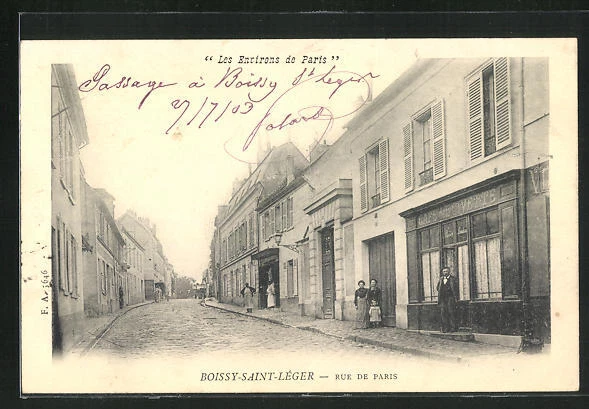 “ Les Environs de Paris ”
Passage à Boissy St Leger
7/7/03
F. A. 3646
BOISSY-SAINT-LÉGER — RUE DE PARIS